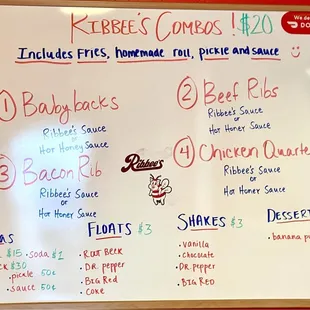 KIBBEE'S COMBOS ! $20
We de
DO
INCLUDES FRIES, HOMEMADE ROLL, PICKLE AND SAUCE
1 Babybacks
Ribbee's Sauce
or
Hot Honey Sauce
2 Beef Ribs
Ribbee's Sauce
or
Hot Honey Sauce
3 Bacon Rib
Ribbee's Sauce
or
Hot Honey Sauce
Ribbee's
4 Chicken Quarte
Ribbee's Sauce
or
Hot Honey Sauce
AS
$15 • Soda $1
CK $30
• pickle 50¢
• Sauce 50¢
FLOATS $3
• ROOT BEER
• DR. PEPPER
• BIG RED
• COKE
SHAKES $3
• vanilla
• chocolate
• DR. PEPPER
• BIG RED
DESSERT
• banana pu